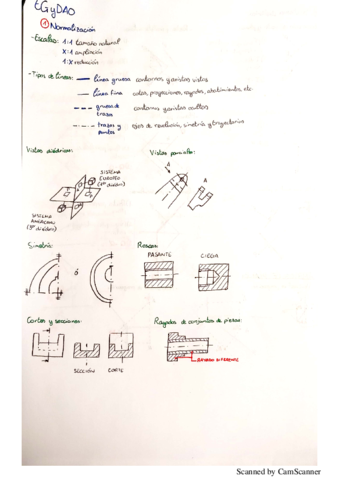 EGyDAO
① Normalización
- Escalas: 1:1 tamaño natural
X:1 ampliación
1:X reducción
- Tipos de líneas: línea gruesa contornos y aristas vistas
línea fina cotas, proyecciones, rayados, abatimientos, etc.
gruesa de trazos contornos y aristas ocultos
trazos y puntos ejes de revolución, simetría y trayectorias
Vistas diédricas:
Vistas parciales:
SISTEMA EUROPEO (1er diedro)
SISTEMA AMERICANO (3er diedro)
A
A
Simetría:
ó
Roscas:
PASANTE
CIEGA
Cortes y secciones:
SECCIÓN
CORTE
Rayados de conjuntos de piezas:
RAYADO DIFERENTE
Scanned by CamScanner